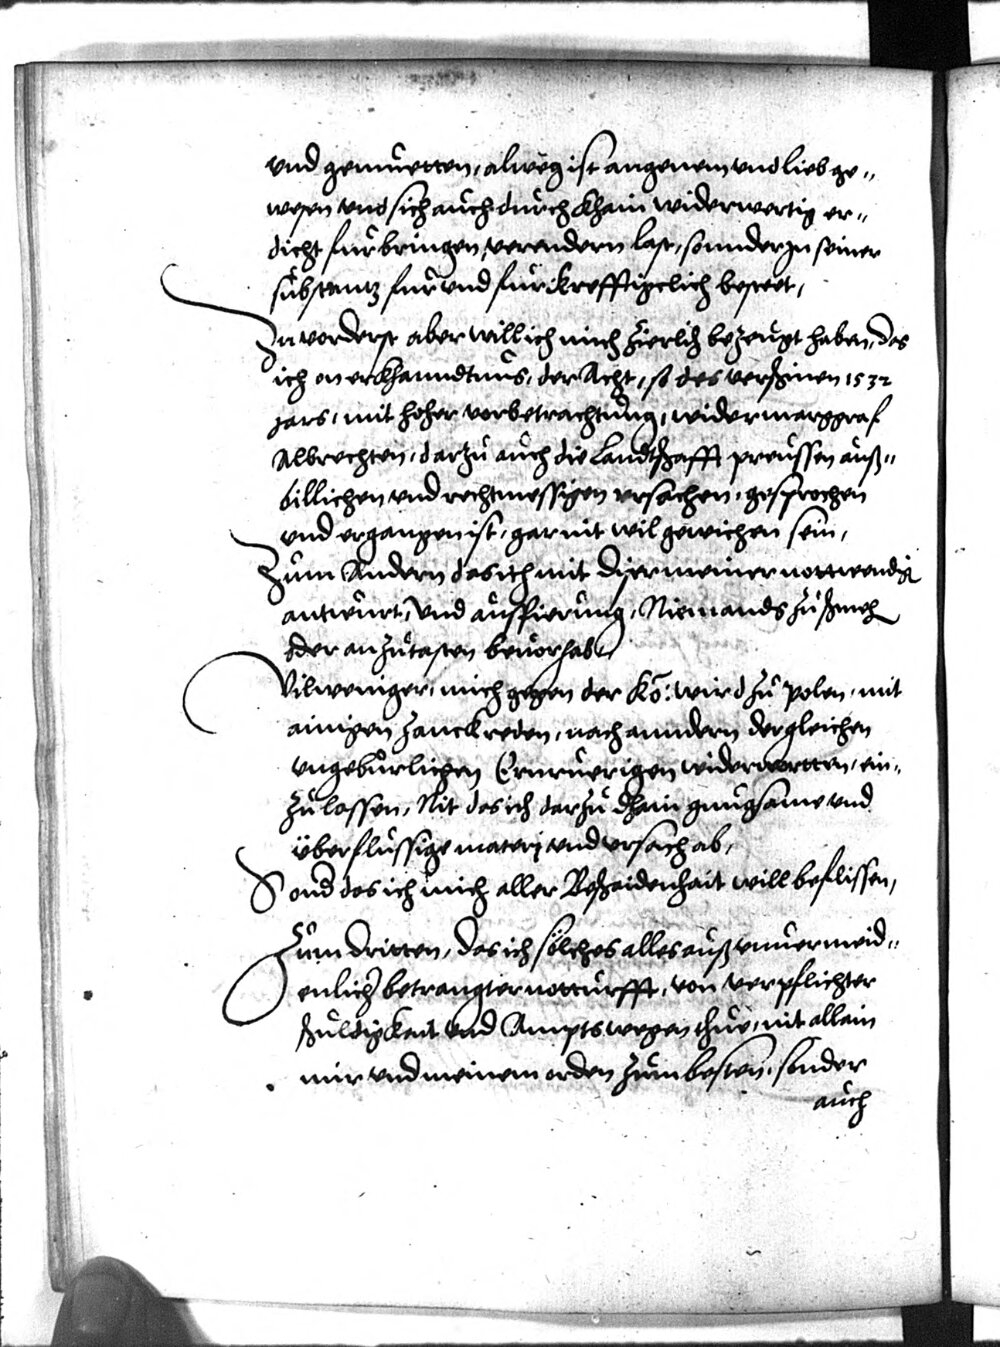 vnd gemuetten, alweg ist angenem vnd lieb ge„
wesen vnd sich auch durch khain widerwertig er„
dicht furbringen, verendern last, sonnder zu seiner
substantz fur vnd fur krefftigelich besteet,
Zuvorderst aber will ich mich zierlich bezeugt haben, das
ich on erkhanndtnus, der Acht, so des verschinen 1532
jars, mit hoher vorbetrachtung, wider marggraf
Albrechten, darzu auch die Landtschafft preussen auß„
billichen vnd rechtmessigen vrsachen, gesprochen
vnd ergangen ist, gar nit wil gewichen sein,
Zum Andern das ich mit diser meiner nottwendig
antwurt, vnd ausfierung, Niemands zuschmeh
oder anzutasten beuor hab,
Vilweniger, mich gegen der Kö: wird zu polen, mit
ainigen zanckreden, nach anndern dergleichen
vngeburlichen Ernruerigen widerwortten, ein„
zulassen, Nit das ich darzu khain gnugsame vnd
überflussige matery vnd vrsach ab,
Sond das ich mich aller Beschaidenhait will beflissen,
Zum dritten, das ich solches alles auß vnuermeid„
enlicher betrangter notturfft, von verpflichter
schuldigkait vnd Ampts wegen thue, nit allain
mir vnd meinem orden zum besten, sonder
auch